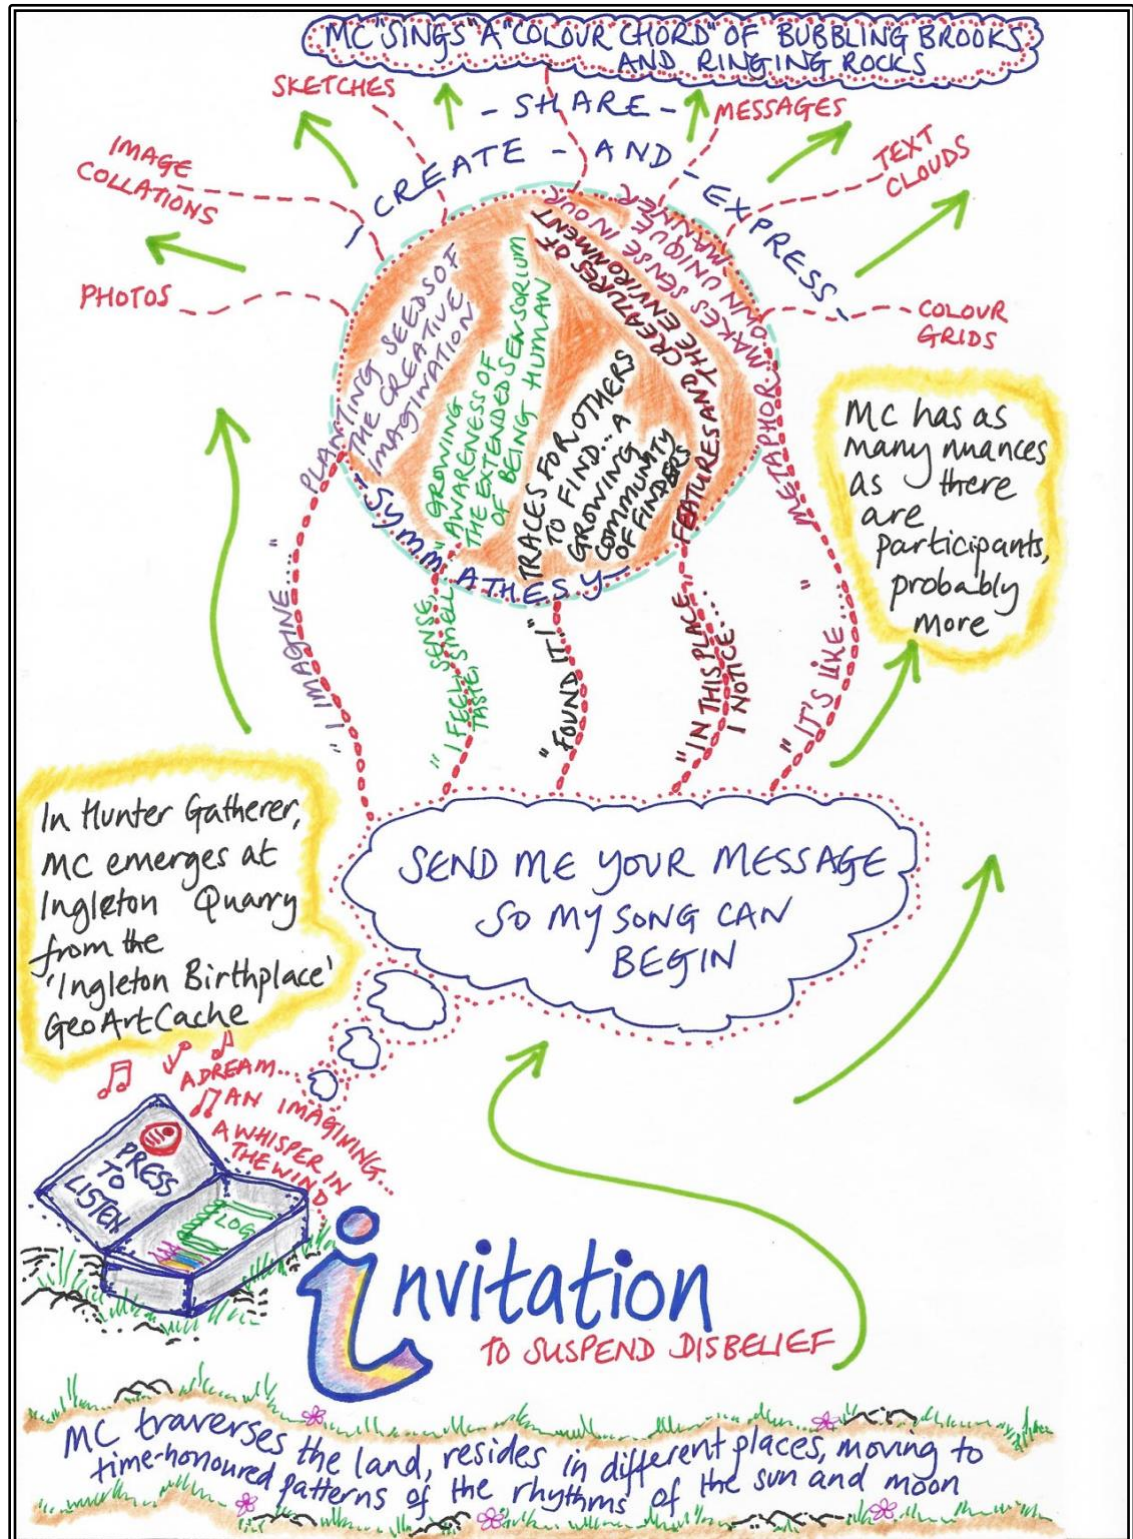 MC "SINGS" A "COLOUR CHORD" OF BUBBLING BROOKS
AND RINGING ROCKS
SKETCHES
- SHARE -
MESSAGES
IMAGE
COLLATIONS
CREATE - AND - EXPRESS
TEXT
CLOUDS
PHOTOS
COLOUR
GRIDS
PLANTING SEEDS OF
THE CREATIVE
IMAGINATION
GROWING
AWARENESS OF
THE EXTENDED SENSORIUM
OF BEING HUMAN
TRACES FOR OTHERS
TO FIND... A
GROWING
COMMUNITY
OF FINDERS
FEATURES AND CREATURES OF
THE ENVIRONMENT
METAPHOR... MAKES SENSE IN OUR
OWN UNIQUE
MANNER
SYMMATHESY
"I IMAGINE...."
"I FEEL, SENSE,
TASTE, SMELL"
"FOUND IT!"
"IN THIS PLACE
I NOTICE...
"IT'S LIKE... "
MC has as
many nuances
as there
are
participants,
probably
more
In Hunter Gatherer,
MC emerges at
Ingleton Quarry
from the
'Ingleton Birthplace'
GeoArtCache
SEND ME YOUR MESSAGE
SO MY SONG CAN
BEGIN
A DREAM...
AN IMAGINING...
A WHISPER IN
THE WIND
PRESS
TO
LISTEN
LOG
invitation
TO SUSPEND DISBELIEF
MC traverses the land, resides in different places, moving to
time-honoured patterns of the rhythms of the sun and moon